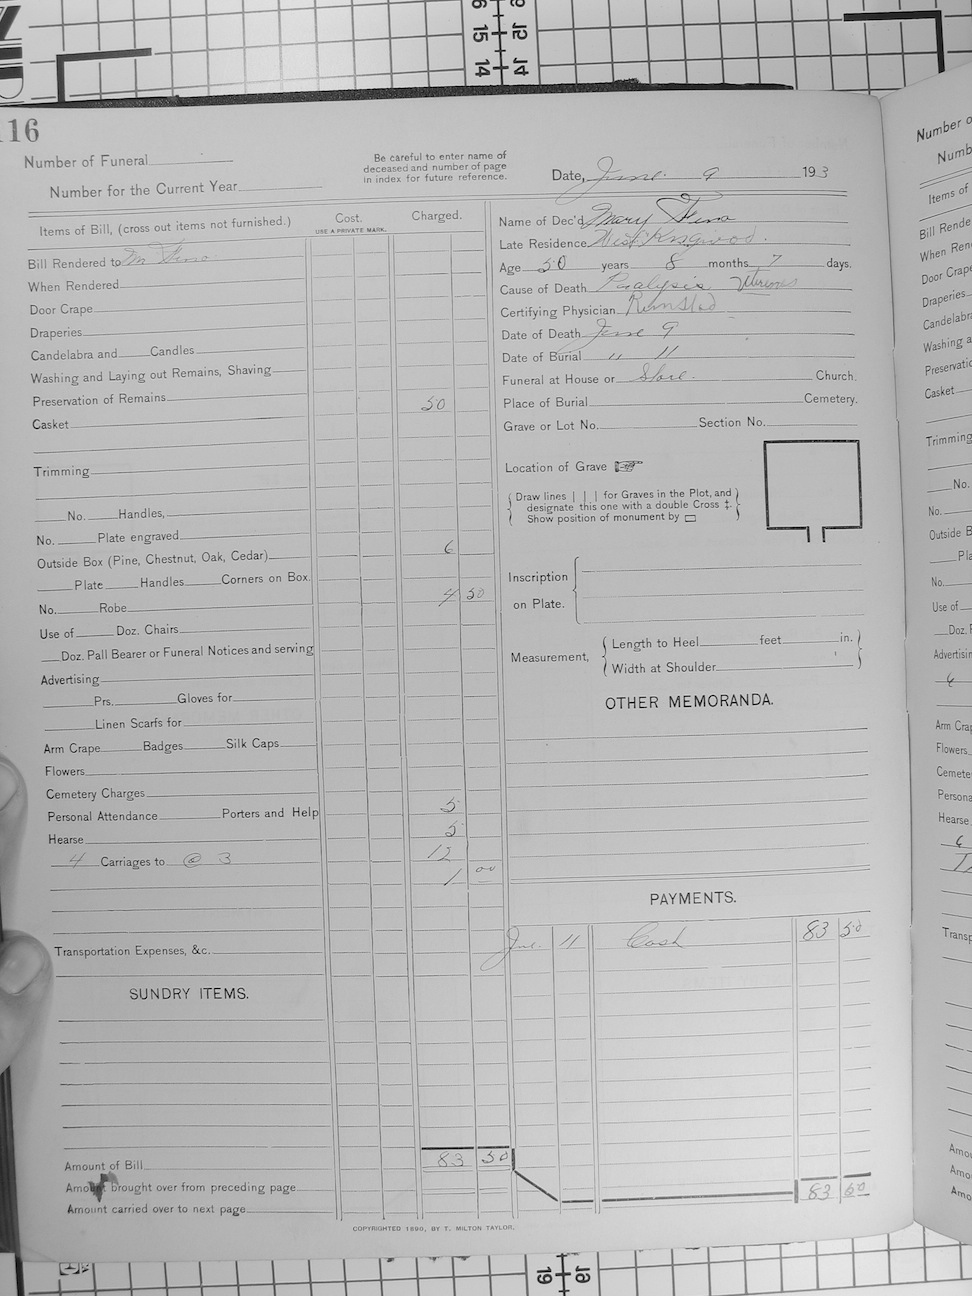 116
Number of Funeral
Number for the Current Year
Be careful to enter name of
deceased and number of page
in index for future reference.
Date, June 9 193
Items of Bill, (cross out items not furnished.)
Cost.
USE A PRIVATE MARK.
Charged.
Bill Rendered to
When Rendered
Door Crape
Draperies
Candelabra and Candles
Washing and Laying out Remains, Shaving
Preservation of Remains
Casket 50
Trimming
No. Handles,
No. Plate engraved
Outside Box (Pine, Chestnut, Oak, Cedar) 6
Plate Handles Corners on Box.
No. Robe 4 50
Use of Doz. Chairs
Doz. Pall Bearer or Funeral Notices and serving
Advertising
Prs. Gloves for
Linen Scarfs for
Arm Crape Badges Silk Caps
Flowers
Cemetery Charges
Personal Attendance Porters and Help 5
Hearse 5
4 Carriages to @ 3 12
1 00
Transportation Expenses, &c.
SUNDRY ITEMS.
Amount of Bill 83 50
Amount brought over from preceding page
Amount carried over to next page
Name of Dec'd Mary
Late Residence West
Age 50 years 8 months 7 days.
Cause of Death Paralysis
Certifying Physician
Date of Death June 9
Date of Burial " 11
Funeral at House or Church.
Place of Burial Cemetery.
Grave or Lot No. Section No.
Location of Grave
Draw lines | | | for Graves in the Plot, and
designate this one with a double Cross ‡.
Show position of monument by
Inscription
on Plate.
Measurement,
Length to Heel feet in.
Width at Shoulder
OTHER MEMORANDA.
PAYMENTS.
June 11 Cash 83 50
83 50
COPYRIGHTED 1890, BY T. MILTON TAYLOR.
Number
Items of
When
Door Crape
Draperies
Candelabra
Casket
Trimming
No.
No.
Outside
No.
Use of
Advertising
Flowers
Hearse
15 15
14 14
19 19